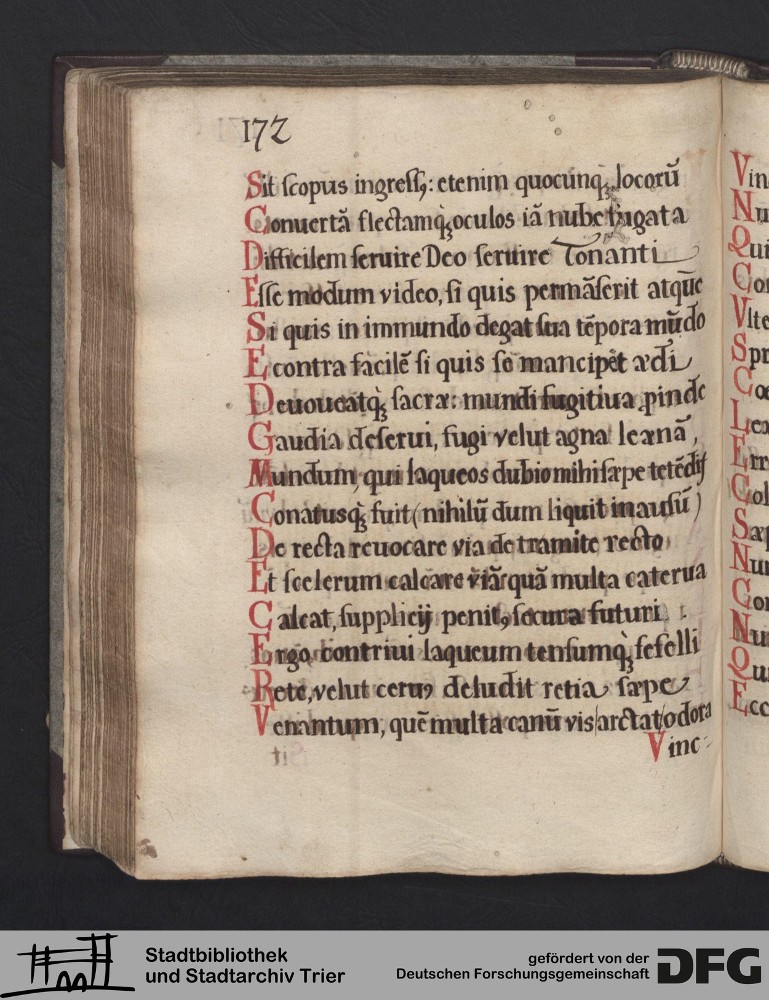 172
Sit scopus ingressꝫ: etenim quocunqꝫ locorū
Conuertā flectamqꝫ oculos iā nube fugata
Difficilem seruire Deo seruire Tonanti
Esse modum video, si quis permāserit atque
Si quis in immundo degat sua tēpora mūdo
E contra facilē si quis se mancipet ædi
Deuoueatqꝫ sacræ: mundi fugitiua ꝓinde
Gaudia deserui, fugi velut agna leænā,
Mundum, qui laqueos dubio mihi sæpe tetēdit
Conatusqꝫ fuit (nihilū dum liquit inausū)
De recta reuocare via de tramite recto,
Et scelerum calcare viā quā multa caterua
Calcat, supplicij penitꝰ secura futuri.
Ergo contriui laqueum tensumqꝫ fefelli
Rete, velut ceruꝰ deludit retia sæpe
Venantum, quē multa canū vis arctat odora
Vinc-
Vin
Nu
Qui
Con
Vlte
Spr
Coe
Lex
Err
Col
Sæp
Nun
Con
Nu
Qu
Ecc
Stadtbibliothek
und Stadtarchiv Trier
gefördert von der
Deutschen Forschungsgemeinschaft
DFG